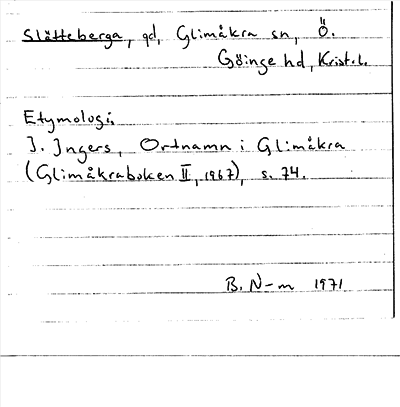 Slätteberga, gd, Glimåkra sn, Ö.
Göinge hd, Krist.l.
Etymologi:
I. Ingers, Ortnamn i Glimåkra
(Glimåkraboken II, 1967), s. 74.
B. N-m 1971